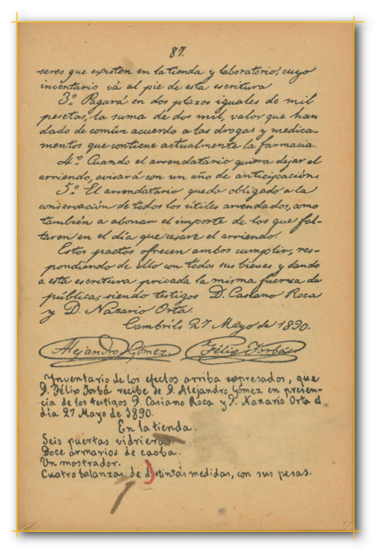 87.
seres que existen en la tienda y laboratorio, cuyo
inventario vá al pie de esta escritura
3.º Pagará en dos plazos iguales de mil
pesetas, la suma de dos mil, valor que han
dado de común acuerdo a las drogas y medica-
mentos que contiene actualmente la farmacia.
4.º Cuando el arrendatario quiera dejar el
arriendo, avisará con un año de anticipación.
5.º El arrendatario queda obligado a la
conservación de todos los útiles arrendados, como
también a abonar el importe de los que fal-
taren en el día que cesare el arriendo.
Estos pactos ofrecen ambos cumplir, res-
pondiendo de ello con todos sus bienes y dando
a esta escritura privada la misma fuerza de
pública; siendo testigos D. Casiano Roca
y D. Nazario Orta.
Cambrils 27 Mayo de 1890.
Alejandro Gómez Félix Torbá
Inventario de los efectos arriba expresados, que
D. Félix Torbá recibe de D. Alejandro Gómez en presen-
cia de los testigos D. Casiano Roca y D. Nazario Orta el
día 27 Mayo de 1890.
En la tienda.
Seis puertas vidrieras.
Doce armarios de caoba.
Un mostrador.
Cuatro balanzas de distintas medidas, con sus pesas.